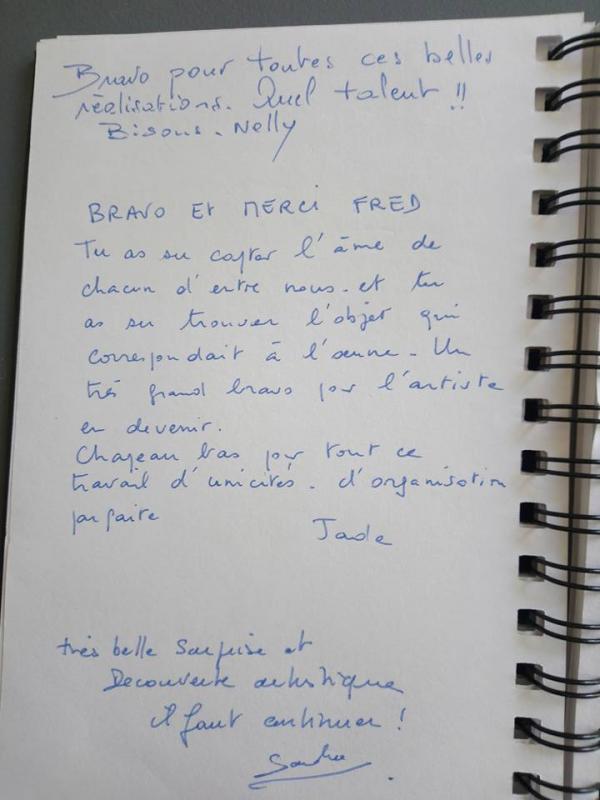 Bravo pour toutes ces belles
réalisations. Quel talent !!
Bisous. Nelly
BRAVO Et MERCi FRED
Tu as su capter l'âme de
chacun d'entre nous. et tu
as su trouver l'objet qui
correspondait à l'œuvre. Un
très grand bravo pour l'artiste
en devenir.
Chapeau bas pour tout ce
travail d'unicités. d'organisation
parfaite
Jade
très belle surprise et
Decouverte artistique
il faut continuer !
Sandra